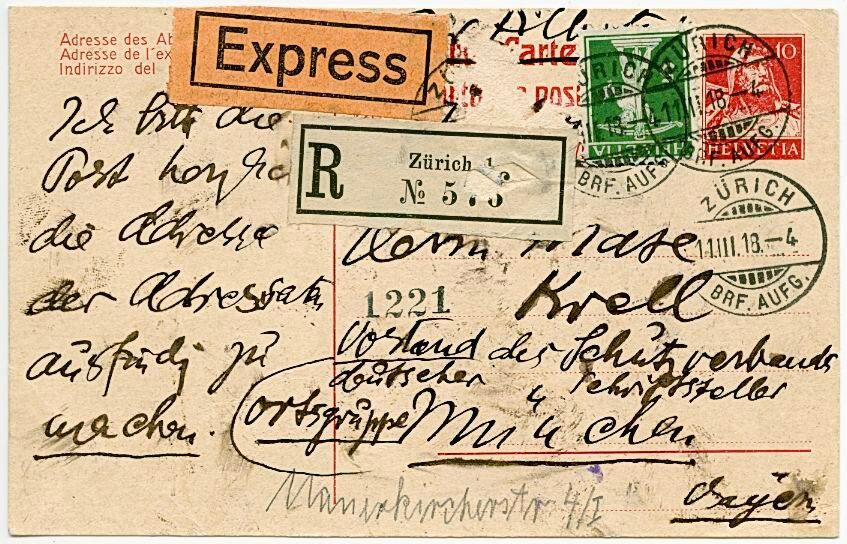 Adresse des Ab
Adresse de l'ex
Indirizzo del
Express
Carte
post
R
Zürich 1
№ 57
ZÜRICH
11.III.18.–4
BRF. AUFG.
10
HELVETIA
ZÜRICH
11.III.18.–4
BRF. AUFG.
ZÜRICH
11.III.18.–4
BRF. AUFG.
Ich bitte die
Post
die Adresse
der Adressaten
ausfindig zu
machen.
Herrn Max
Krell
1221
Vorstand des Schutzverbands
deutscher Schriftsteller
Ortsgruppe München
Bayern
Mauerkircherstr 4/I